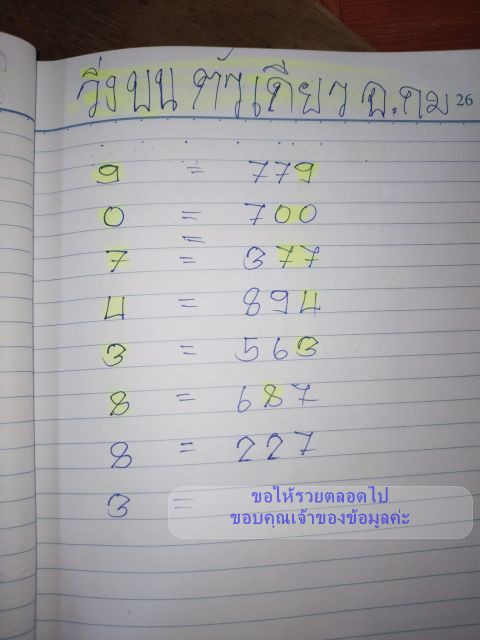 วิ่งบน ตัวเดียว อ.คม 26
9 = 779
0 = 700
=
7 = 377
4 = 894
3 = 563
8 = 687
8 = 227
3 =
ขอให้รวยตลอดไป
ขอบคุณเจ้าของข้อมูลค่ะ